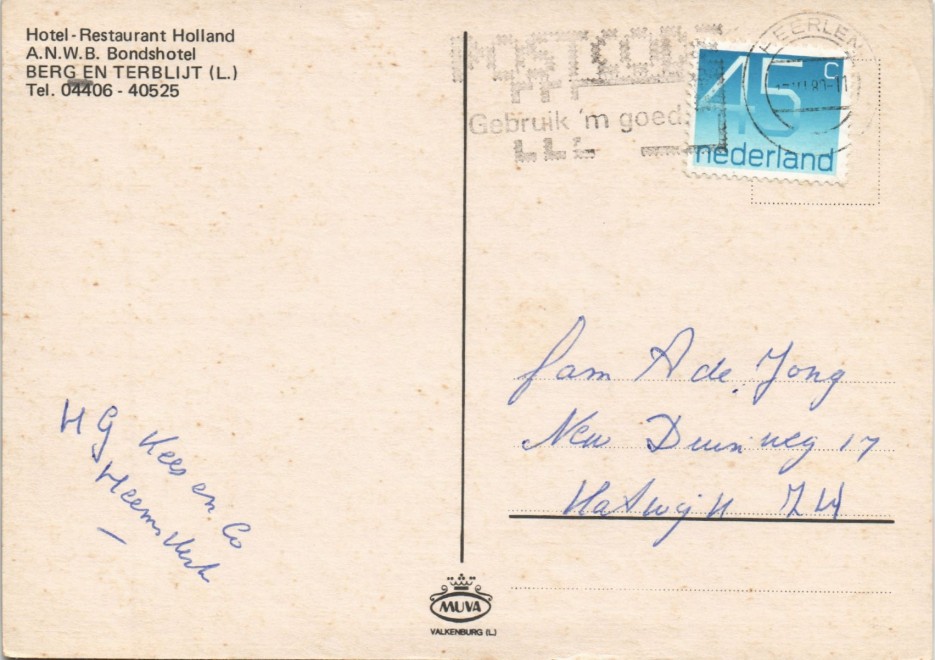 Hotel-Restaurant Holland
A.N.W.B. Bondshotel
BERG EN TERBLIJT (L.)
Tel. 04406 - 40525
POSTCODE
Gebruik 'm goed
HEERLEN
45 c
nederland
fam A de Jong
New Duinweg 17
Katwijk ZH
H G
Kees en Co
Heemskerk
MUVA
VALKENBURG (L.)